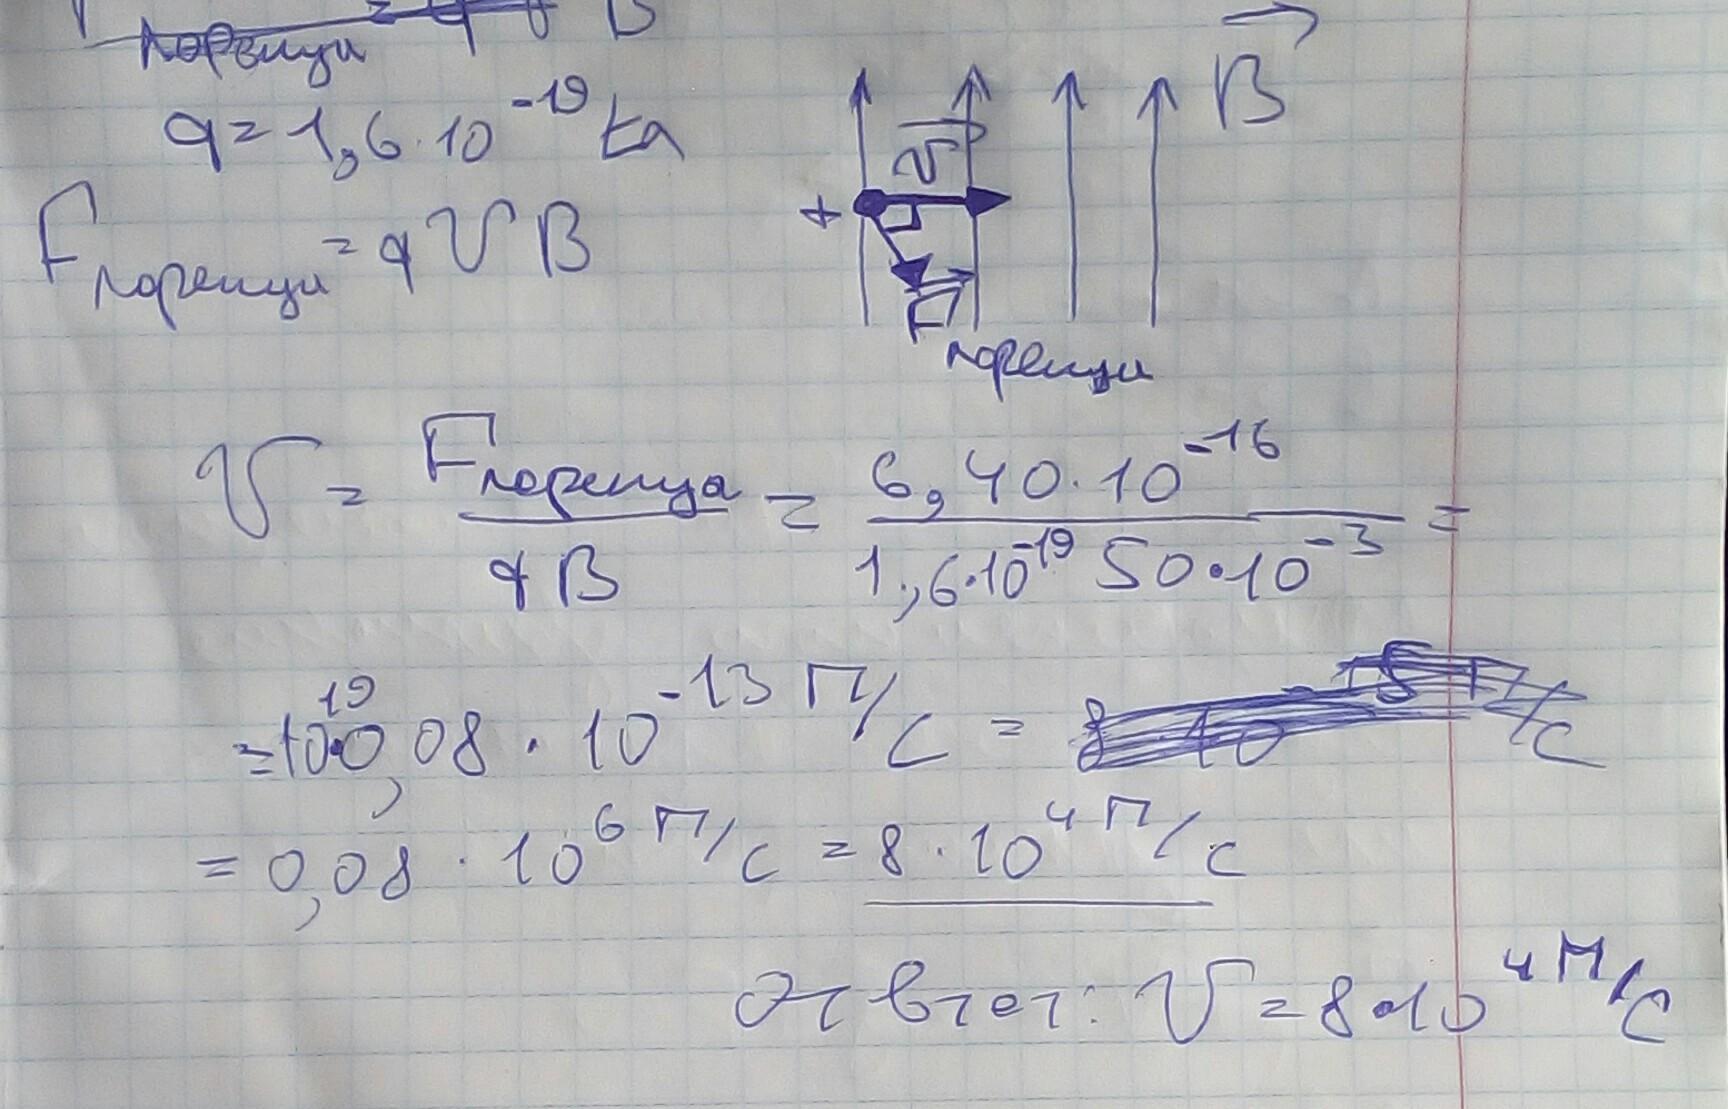 Fлоренца = qVB
q = 1,6·10⁻¹⁹ Кл
Fлоренца = qVB
B
+
V
F лоренца
V = Fлоренца / qB = 6,40·10⁻¹⁶ / 1,6·10⁻¹⁹ 50·10⁻³ =
= 10¹⁹·0,08·10⁻¹³ м/с =
= 0,08·10⁶ м/с = 8·10⁴ м/с
Ответ: V = 8·10⁴ м/с